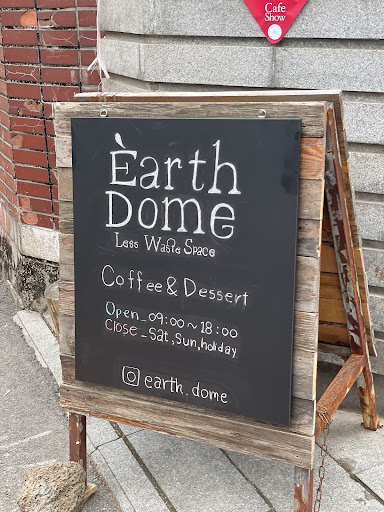 Cafe
Show
Èarth
Dome
Less Waste Space
Coffee & Dessert
Open_09:00~18:00
Close_Sat,Sun,holiday
earth.dome